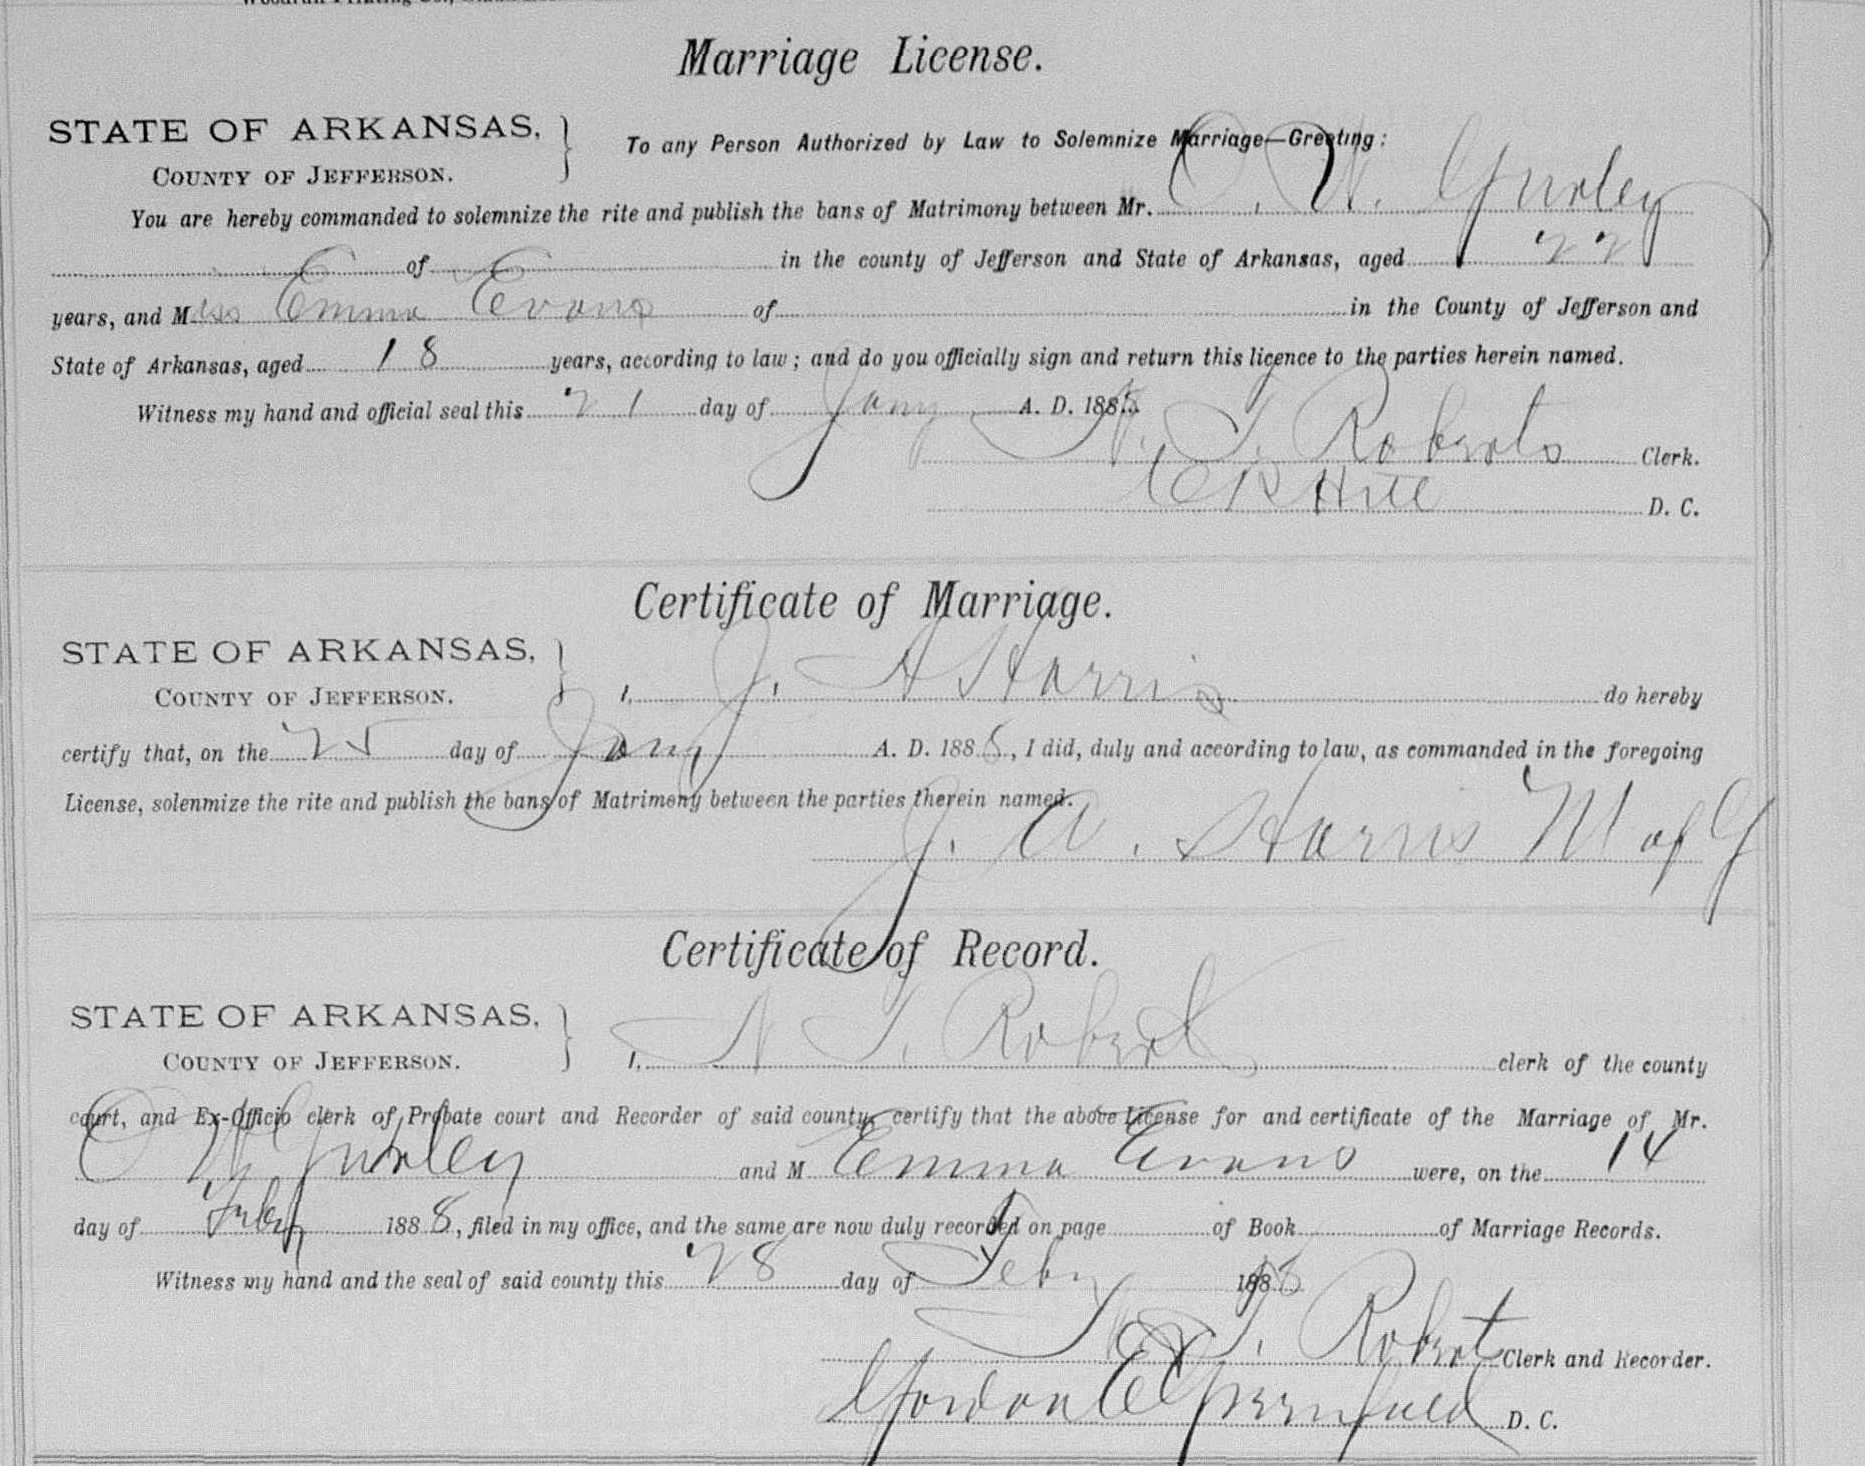 Marriage License.
STATE OF ARKANSAS,
COUNTY OF JEFFERSON.
To any Person Authorized by Law to Solemnize Marriage—Greeting:
You are hereby commanded to solemnize the rite and publish the bans of Matrimony between Mr. O. W. Gurley
of in the county of Jefferson and State of Arkansas, aged 22
years, and Miss Emma Evans of in the County of Jefferson and
State of Arkansas, aged 18 years, according to law; and do you officially sign and return this licence to the parties herein named.
Witness my hand and official seal this 21 day of Jany A. D. 1888.
N. T. Roberts Clerk.
Hill D. C.
Certificate of Marriage.
STATE OF ARKANSAS,
COUNTY OF JEFFERSON.
I, J. A Harris do hereby
certify that, on the 25 day of Jany A. D. 1888, I did, duly and according to law, as commanded in the foregoing
License, solenmize the rite and publish the bans of Matrimony between the parties therein named.
J. A. Harris M of G
Certificate of Record.
STATE OF ARKANSAS,
COUNTY OF JEFFERSON.
I, N T. Roberts clerk of the county
court, and Ex-Officio clerk of Probate court and Recorder of said county, certify that the above License for and certificate of the Marriage of Mr.
O W Gurley and M Emma Evans were, on the 14
day of Feby 1888, filed in my office, and the same are now duly recorded on page of Book of Marriage Records.
Witness my hand and the seal of said county this 28 day of Feby 1888
N. T. Roberts Clerk and Recorder.
Gordon E D. C.